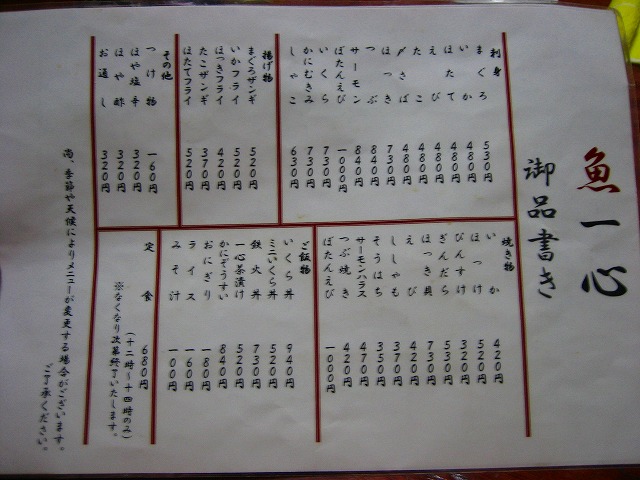 魚一心
御品書き
刺身
まぐろ 530円
いか 480円
ほたて 480円
えび 480円
たこ 480円
〆さば 480円
ほっき 730円
つぶ 840円
サーモン 840円
ぼたんえび 一000円
いくら 730円
かにむきみ 730円
しゃこ 630円
揚げ物
まぐろザンギ 520円
いかフライ 520円
ほっきフライ 420円
たこザンギ 370円
ほたてフライ 520円
その他
つけ物 一60円
ほや塩辛 320円
ほや酢 320円
お通し 320円
焼き物
いか 420円
ほっけ 520円
びんすけ 320円
ぎんだら 530円
ほっき貝 730円
えび 420円
ししゃも 370円
そうはち 350円
サーモンハラス 470円
つぶ焼き 420円
ぼたんえび 一000円
ご飯物
いくら丼 940円
ミニいくら丼 520円
鉄火丼 730円
一心茶漬け 520円
かにぞうすい 840円
おにぎり 一80円
ライス 一60円
みそ汁 一00円
定食 680円
(十二時〜十四時のみ)
※なくなり次第終了いたします。
尚、季節や天候によりメニューが変更する場合がございます。
ご了承ください。